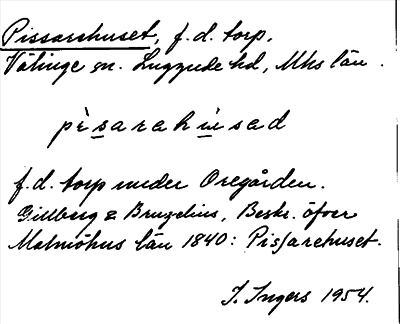 Pissarehuset, f.d. torp.
Välinge sn. Luggude hd, Mhs län.
pìsarahùsad
f.d. torp under Oregården.
Gillberg & Bruzelius, Beskr. öfver
Malmöhus län 1840: Pissarehuset.
I. Ingers 1954.